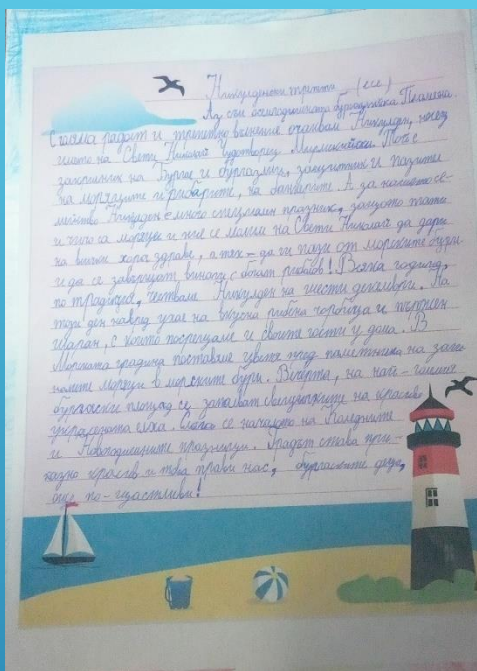 Никулденски трепети – (есе)
Аз съм осемгодишната бургазлийка Пламена.
С голяма радост и трепетно вълнение очаквам Никулден, денят
на Свети Николай Чудотворец Мирликийски. Той е
закрилник на Бургас и бургазлии, защитник и пазител
на моряците и рибарите, на банкерите. А за нашето се-
мейство Никулден е много специален празник, защото татко
и чичо са моряци и ние се молим на Свети Николай да дари
на всички хора здраве, а тях – да ги пази от морските бури
и да се завръщат винаги с обилен риболов! Всяка година,
по традиция, честваме Никулден на шести декември. На
този ден навред ухае на вкусна рибена чорбица и пържен
шаран, с които посрещаме и своите гости у дома. В
Морската градина поставяме цветя пред паметника на заги-
налите моряци в морските бури. Вечерта, на най-големия
бургаски площад се запалват светлинките на красиво
украсената елха. се началото на Коледните
и Новогодишните празници. Градът става при-
казно красив и това прави нас, бургаските деца,
още по-щастливи!